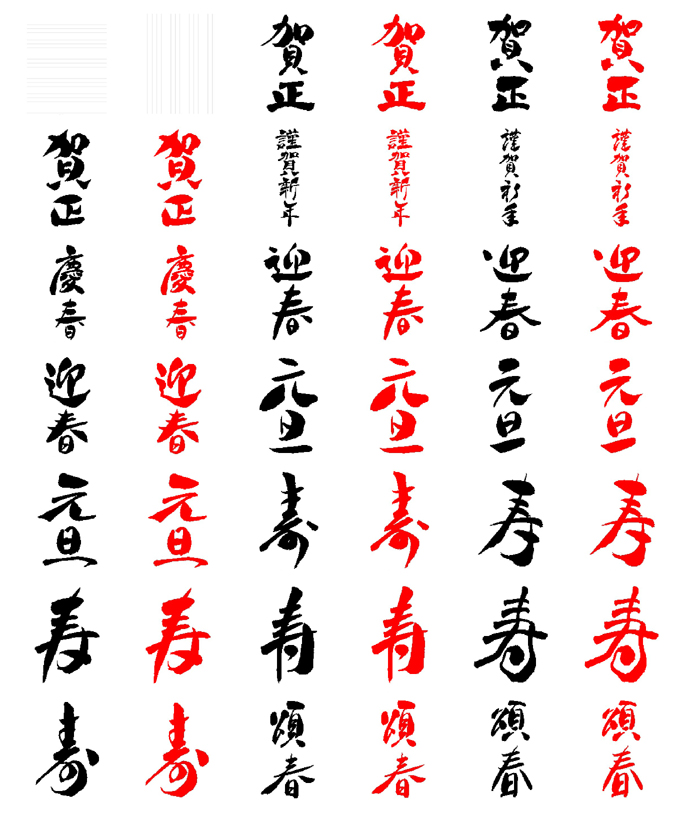 賀正
賀正
賀正
賀正
賀正
賀正
謹賀新年
謹賀新年
謹賀新年
謹賀新年
慶春
慶春
迎春
迎春
迎春
迎春
迎春
迎春
元旦
元旦
元旦
元旦
元旦
元旦
寿
寿
寿
寿
寿
寿
寿
寿
寿
寿
寿
寿
頌春
頌春
頌春
頌春